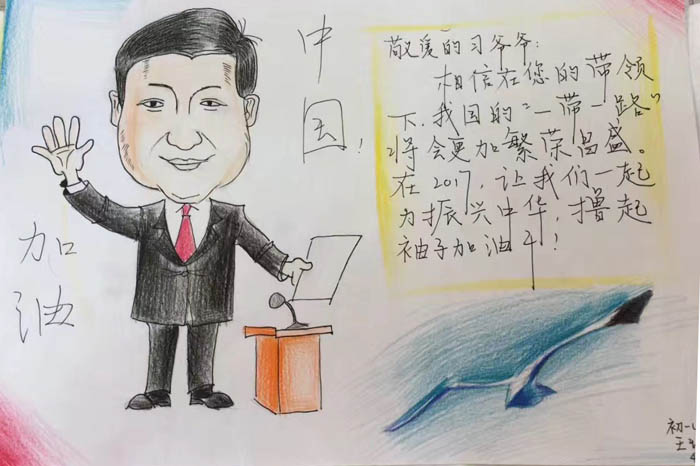 中国！
加油
敬爱的习爷爷：
相信在您的带领
下，我国的“一带一路”
将会更加繁荣昌盛。
在2017，让我们一起
为振兴中华，撸起
袖子加油干！
初一
王